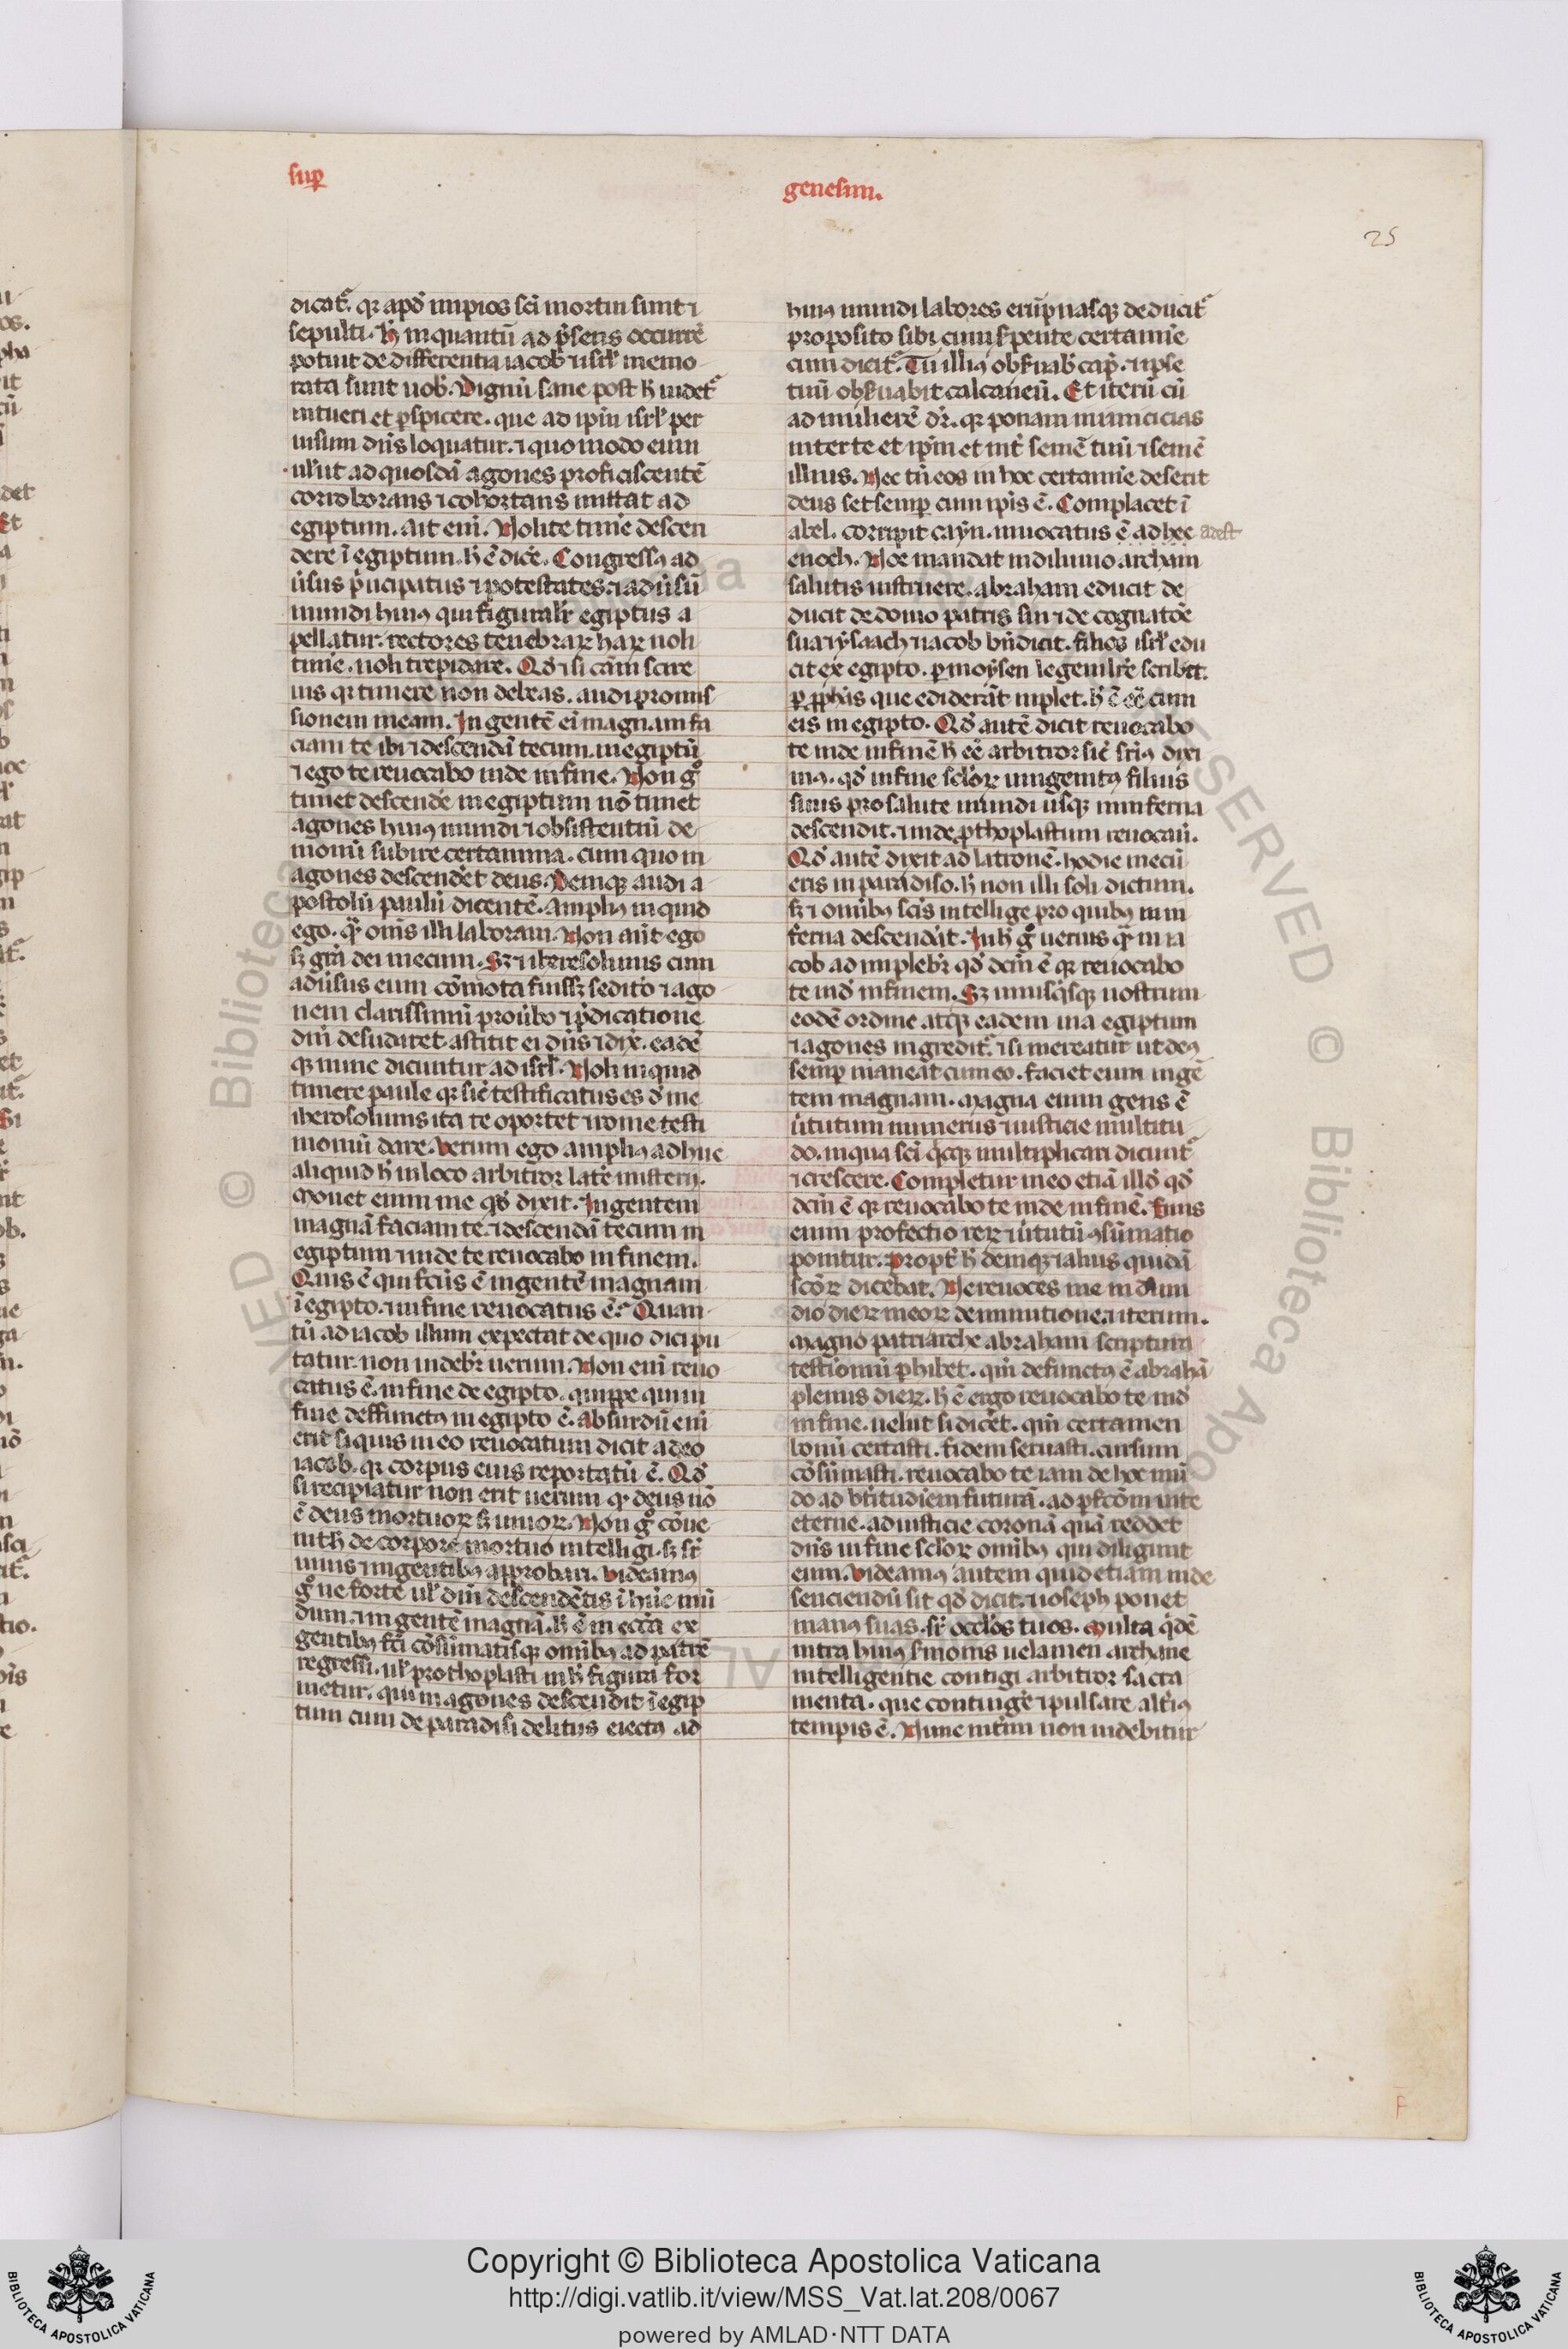 sup̱
genesim.
25
dicat᷒. qr apḋ impios sc̄i mortui sunt ⁊
sepulti. h̓ inquantū ad p̓sens occurrē
potuit de differentia iacob ⁊ isrl̓ memo
rata sunt uob̓. Dignū sane post h̓ uidet᷒
intueri et ꝑspicere. que ad ip̄m isrl̓ per
uisum dn̄s loquatur. ⁊ quomodo eum
uel̓ut ad quosdā agones proficiscentē
corroborans ⁊ cohortans mittat ad
egiptum. Ait eni. Nolite tim̓e descen
dere ī egiptum. h̓ ē dic̓e. Congressꝰ ad
ūsus p̓ncipatus ⁊ potestates. ⁊ adūsū
mundi huiꝰ qui figuralr̓ egiptus a
pellatur. rectores tenebraꝝ haꝝ noli
tim̓e. noli trepidare. Qḋ ⁊ si cām scire
uis qr timere non debeas. audi promis
sionem meam. In gentē eī magnam fa
ciam te ibi ⁊ descendā tecum in egiptū
⁊ ego te reuocabo inde in fine. Non gͦ
timet descende in egiptum nō timet
agones huiꝰ mundi ⁊ obsistentiū de
monū subire certamina. cum quo in
agones descendet deus. Deniqꝫ audi a
postolū paulū dicentē. Ampliꝰ inquid
ego. qͣ om̄s illi laboraui. Non aūt ego
sꝫ grā dei mecum. Sꝫ ⁊ iherosolimis cum
adūsus eum cōmota fuissꝫ sedito ⁊ ago
nem clarissimū pro ūbo ⁊ p̓dicatione
dn̄i desudaret. astitit ei dn̄s ⁊ dix̓. eadē
qꝫ nunc dicuntur ad isrl̓. Noli inquid
timere paule qr sic̓ testificatus es d̓ me
iherosolimis ita te oportet ⁊ rome testi
moniū dare. Verum ego ampliꝰ adhuc
aliquid h̓ in loco arbitror late misterij.
Mouet enim me qḋ dixit. In gentem
magnā faciam te. ⁊ descendā tecum in
egiptum ⁊ inde te reuocabo in finem.
Quis ē qui fc̄us ē in gentē magnam
ī egipto. ⁊ in fine reuocatus ē. Quan
tū ad iacob illum expectat de quo dici pu
tatur non uidebr̓ uerum. Non eni reuo
catus ē. in fine de egipto. quippe qui in
fine deffunctꝰ in egipto ē. absurdū eni
erit si quis in eo reuocatum dicit a deo
iacob. qr corpus eius reportatū ē. Qḋ
si recipiatur non erit uerum qꝛ deus nō
ē deus mortuoꝝ sꝫ uiuoꝝ. Non gͦ cōue
nit h̓ de corpore mortuo intelligi. sꝫ sr̓
uiuis ⁊ uigentibꝰ approbari. Videamꝰ
gͦ ne forte uel̓ dn̄i descendētis ī hūc mū
dum. ⁊ in gentē magnā. h̓ ē in ecc̄a ex
gentibꝰ fc̄i cōsumatisqꝫ omībꝰ ad patrē
regressi. uel̓ prothoplasti in h̓ figura for
metur. qui in agones descendit ī egip
tum cum de paradisi delitiis eiectꝰ ad
huiꝰ mundi labores erūpnasqꝫ deducit᷒
proposito sibi cum s̓pente certamīe
cum dicit᷒. Tu illiꝰ obs̓uab̓ cap̓. ⁊ ipse
tuū obs̓uabit calcaneū. Et iterū cū
ad mulierē dr̓. qr ponam inimicicias
inter te et ip̄m et int̓ semē tuū ⁊ semē
illius. Nec tn̄ eos in hoc certamīe deserit
deus set semp̱ cum ip̄is ē. Complacet ī
abel. corripit cayn. inuocatus ē ad hec adest
enoch. Noe mandat in diluuio archam
salutis instruere. abraham educit de
ducit de domo patris sui ⁊ de cognatōe
sua ⁊ ysaach ⁊ iacob bn̄dicit. filios isrl̓ edu
cit ex egipto. ꝑ moysen legem lr̓e scribit.
ꝑ ꝓphās que ediderāt inplet. h̓ ē eē cum
eis in egipto. Qḋ autē dicit reuocabo
te inde in finē h̓ eē arbitror sic̓ sr̄iꝰ dixi
mꝰ. qḋ in fine sc̄loꝝ unigenitꝰ filius
suus pro salute mundi usqꝫ in inferna
descendit. ⁊ inde prothoplastum reuocaū.
Qḋ autē dixit ad latronē. hodie mecū
eris in paradiso. h̓ non illi soli dictum.
sꝫ ⁊ omībꝰ sc̄is intellige pro quibꝰ in in
ferna descendāt. In h̓ gͦ uerius qͣ in ia
cob ad implebr̓ qḋ dcm̄ ē qr reuocabo
te ind̓ in finem. Sꝫ unusq̓sqꝫ nostrum
eodē ordine atqꝫ eadem uia egiptum
⁊ agones ingredit᷒. ⁊ si mereatur ut deꝰ
semp̱ maneat cum eo. faciet eum in gē
tem magnam. Magna enim gens ē
ūtutum numerus ⁊ iusticie multitu
do. in qua sc̄i q̓cqꝫ multiplicari dicunt᷒
⁊ crescere. Completur in eo etiā illḋ qḋ
dcm̄ ē qr reuocabo te inde in finē. Finis
enim profectio reꝝ ⁊ ūtutū ꝯsūmatio
ponitur. propt̓ h̓ deniqꝫ ⁊ alius quidā
sc̄oꝝ dicebat. Ne reuoces me in dim
dio dieꝝ meoꝝ deminutione. ⁊ iterum.
Magno patriarche abraham scriptura
testimoniū ꝑhibet. qm̄ defunctꝰ ē abrahā
plenus dieꝝ. h̓ ē ergo reuocabo te ind̓
in fine. uelut si dicet. qm̄ certamen
bonū certasti. fidem seruasti. cursum
cōsūmasti. reuocabo te iam de hoc mū
do ad bt̄itudiem futurā. ad pfc̄om uite
eterne. ad iusticie coronā quā reddet
dn̄s in fine sc̄loꝝ omībꝰ qui diligunt
eum. Videamꝰ autem quid etiam inde
senciendū sit qḋ dicit. ⁊ ioseph ponet
manꝰ suas. sr̓ occl̓os tuos. Multa q̓dē
intra huiꝰ s̓monis uelamen archane
intelligentie contigi arbitror sacra
menta. que continge̓ ⁊ pulsare alt̓iꝰ
tempis ē. Nunc int̓im non uidebitur
F
Copyright © Biblioteca Apostolica Vaticana
http://digi.vatlib.it/view/MSS_Vat.lat.208/0067
powered by AMLAD·NTT DATA